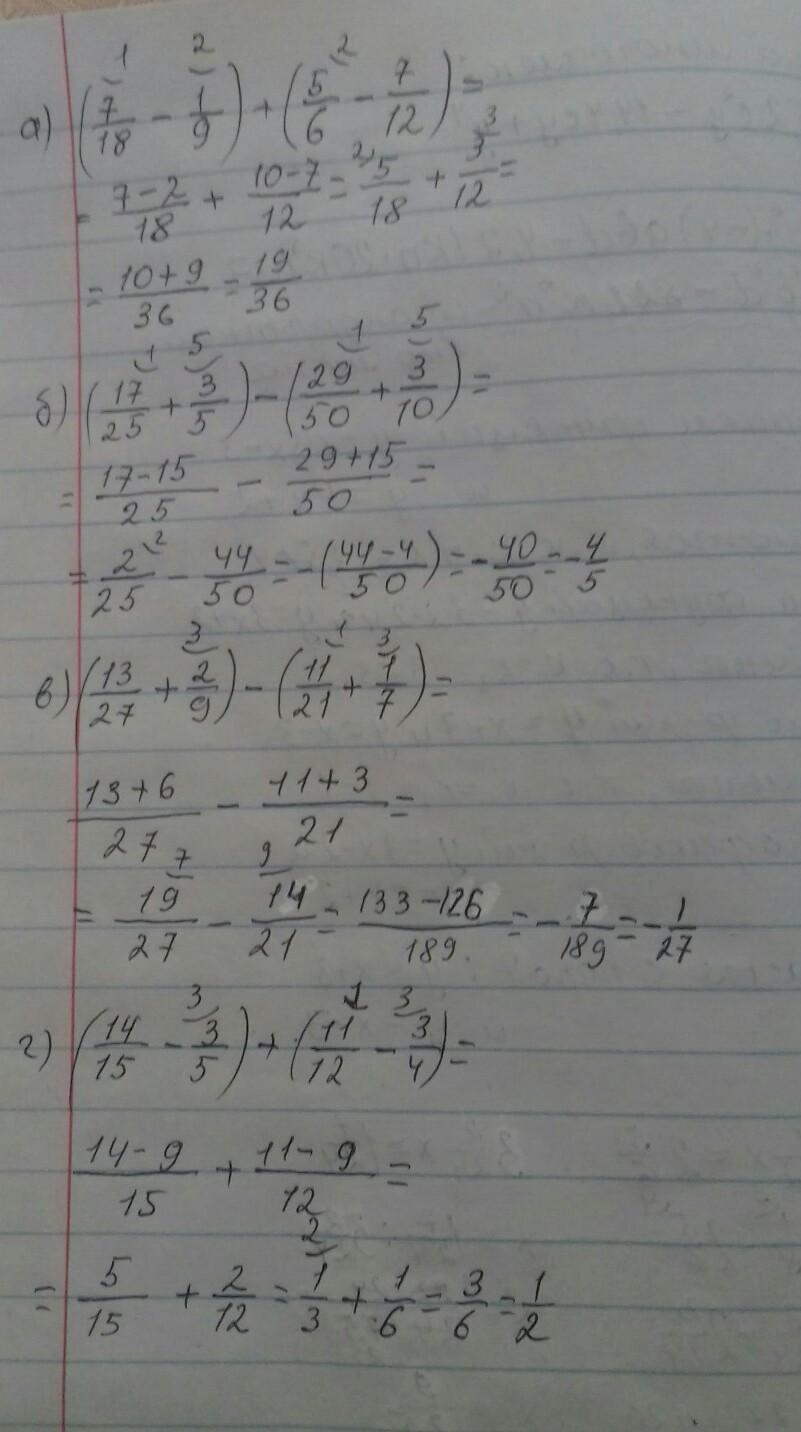 а) (7/18 - 1/9) + (5/6 - 7/12) =
= 7-2/18 + 10-7/12 = 5/18 + 3/12 =
= 10+9/36 = 19/36
б) (17/25 + 3/5) - (29/50 + 3/10) =
= 17-15/25 - 29+15/50 =
= 2/25 - 44/50 = -(44-4/50) = -40/50 = -4/5
в) (13/27 + 2/9) - (11/21 + 1/7) =
13+6/27 - 11+3/21 =
= 19/27 - 14/21 = 133-126/189 = -7/189 = -1/27
г) (14/15 - 3/5) + (11/12 - 3/4) =
14-9/15 + 11-9/12 =
= 5/15 + 2/12 = 1/3 + 1/6 = 3/6 = 1/2